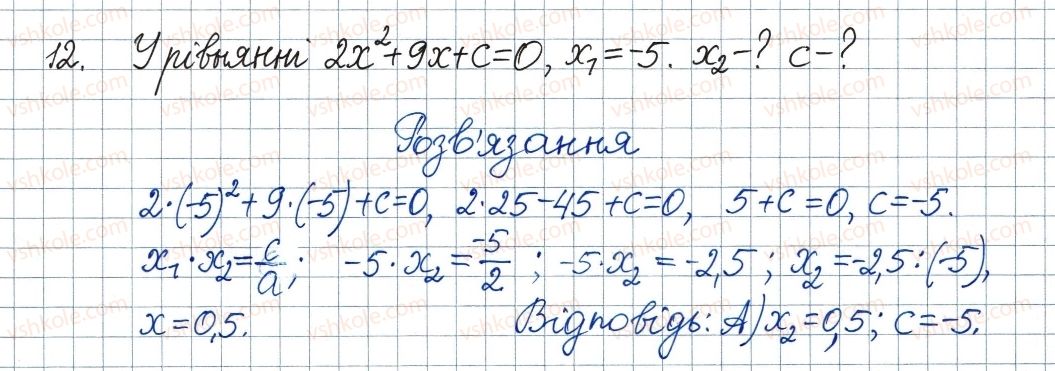 12. У рівнянні 2x²+9x+c=0, x₁=-5. x₂-? c-?
Розв'язання
2·(-5)²+9·(-5)+c=0, 2·25-45+c=0, 5+c=0, c=-5.
x₁·x₂=c/a; -5·x₂=-5/2; -5·x₂=-2,5; x₂=-2,5:(-5),
x=0,5. Відповідь: А) x₂=0,5; c=-5.